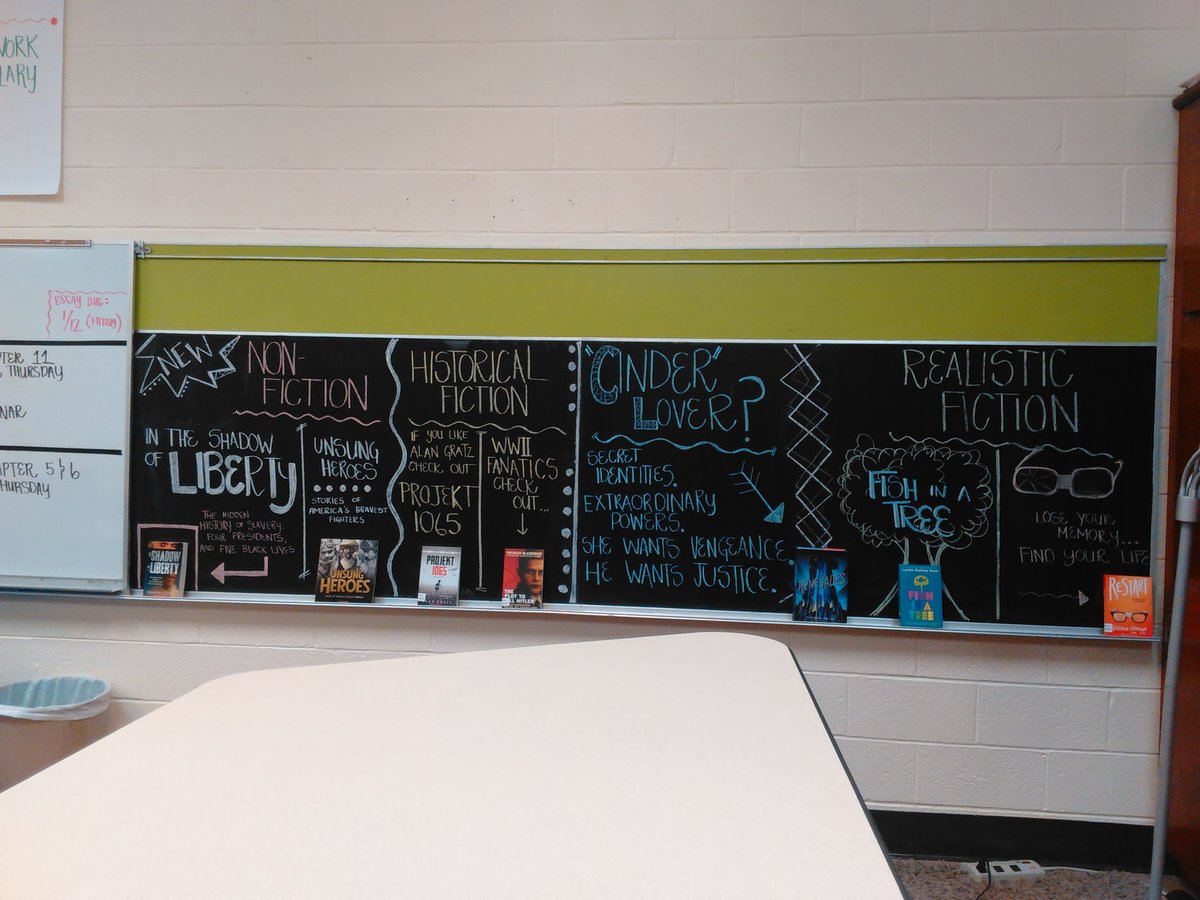 WORK
LARY
ESSAY DUE:
1/12 (FRIDAY)
PTER 11
THURSDAY
NAR
APTER 5 & 6
HURSDAY
NEW
NON-
FICTION
IN THE SHADOW
OF LIBERTY
THE HIDDEN
HISTORY OF SLAVERY,
FOUR PRESIDENTS,
AND FIVE BLACK LIVES
UNSUNG
HEROES
STORIES OF
AMERICA'S BRAVEST
FIGHTERS
HISTORICAL
FICTION
IF YOU LIKE
ALAN GRATZ
CHECK OUT
PROJEKT
1065
WWII
FANATICS
CHECK
OUT...
"CINDER"
LOVER?
SECRET
IDENTITIES.
EXTRAORDINARY
POWERS.
SHE WANTS VENGEANCE.
HE WANTS JUSTICE.
REALISTIC
FICTION
FISH IN A
TREE
LOSE YOUR
MEMORY...
FIND YOUR LIFE
SHADOW
LIBERTY
UNSUNG
HEROES
PROJEKT
1065
ALAN GRATZ
PATRICIA McCORMICK
THE PLOT TO
KILL HITLER
RENEGADES
Lynda Mullaly Hunt
FISH
IN A
TREE
RESTART
GORDON KORMAN